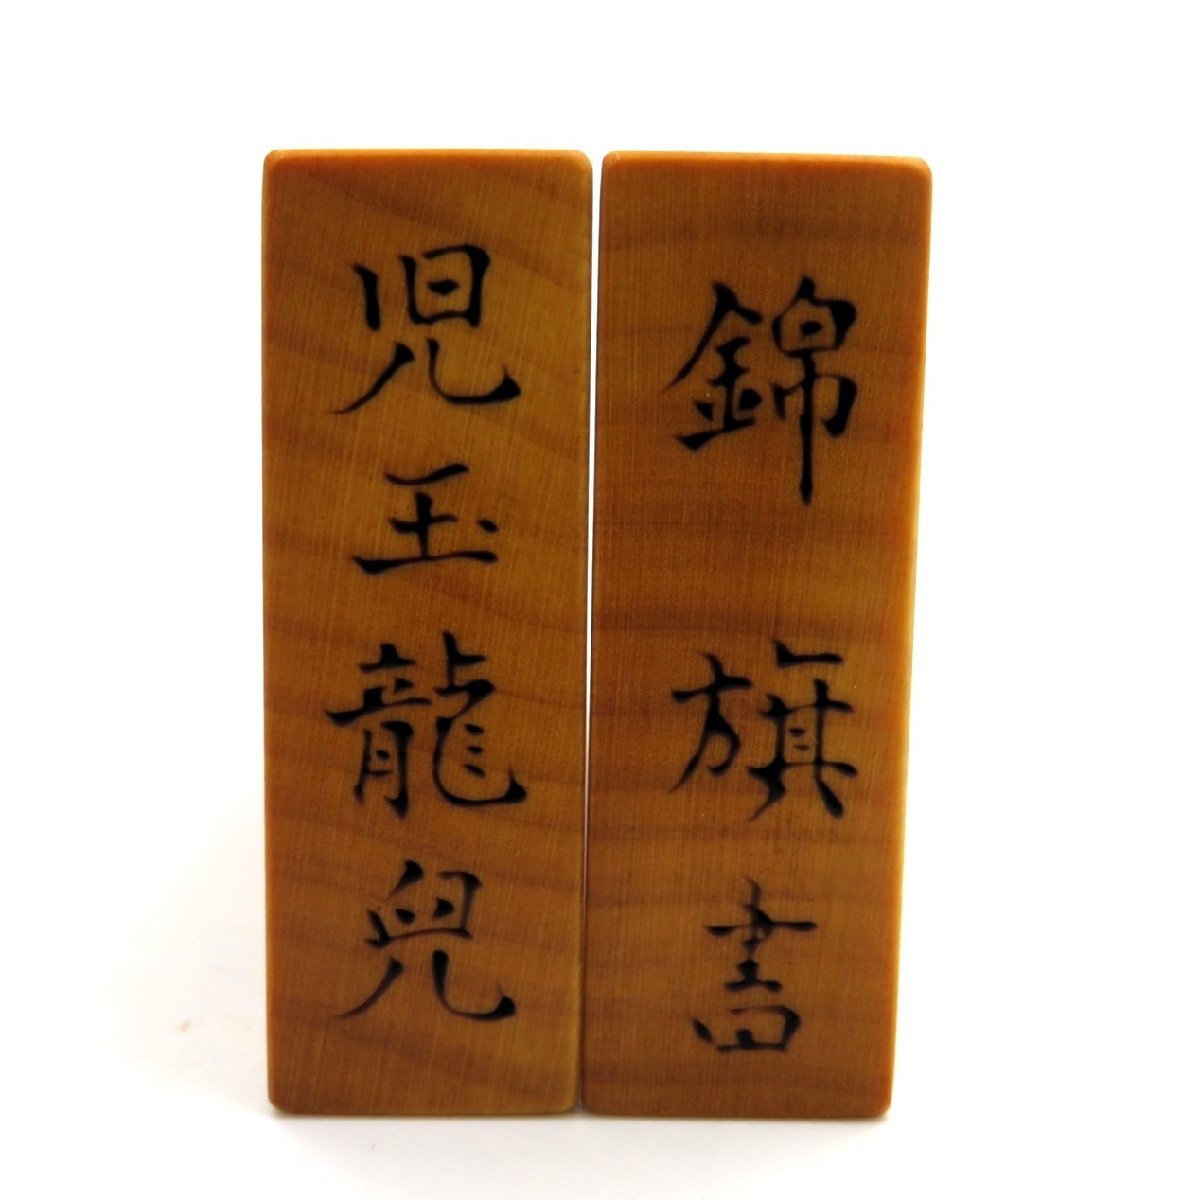 錦旗書
児玉龍兒